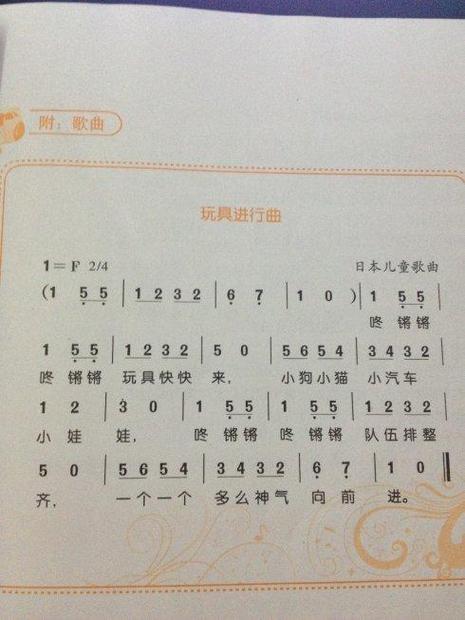 附：歌曲
玩具进行曲
1=F 2/4 日本儿童歌曲
(1 5̣ 5̣ | 1 2 3 2 | 6̣ 7̣ | 1 0 ) | 1 5̣ 5̣ |
咚 锵锵
1 5̣ 5̣ | 1 2 3 2 | 5 0 | 5 6 5 4 | 3 4 3 2 |
咚 锵锵 玩具快快 来， 小狗小猫 小汽车
1 2 | 3 0 | 1 5̣ 5̣ | 1 5̣ 5̣ | 1 2 3 2 |
小 娃 娃， 咚 锵锵 咚 锵锵 队伍排整
5 0 | 5 6 5 4 | 3 4 3 2 | 6̣ 7̣ | 1 0 ‖
齐， 一个一个 多么神气 向 前 进。